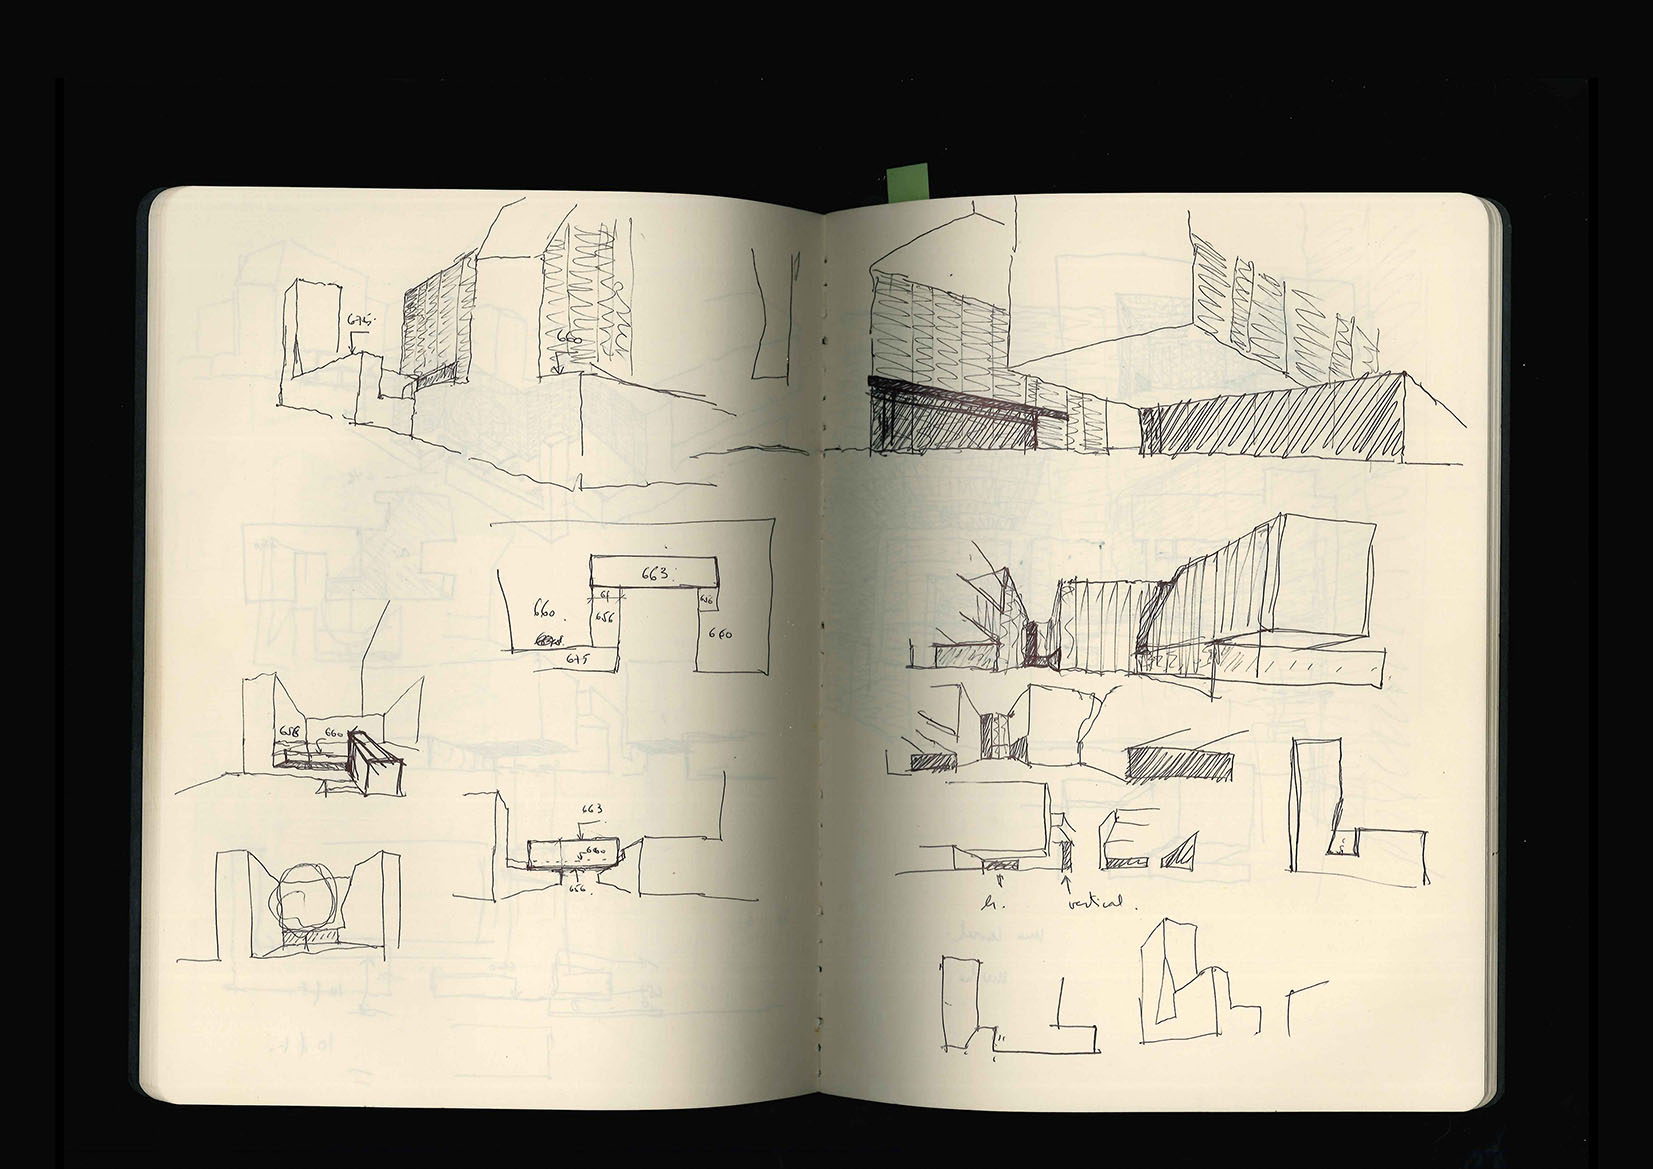 675.
660
663.
61
656
656
660.
660
675
658
660
663
660
656.
h.
vertical.